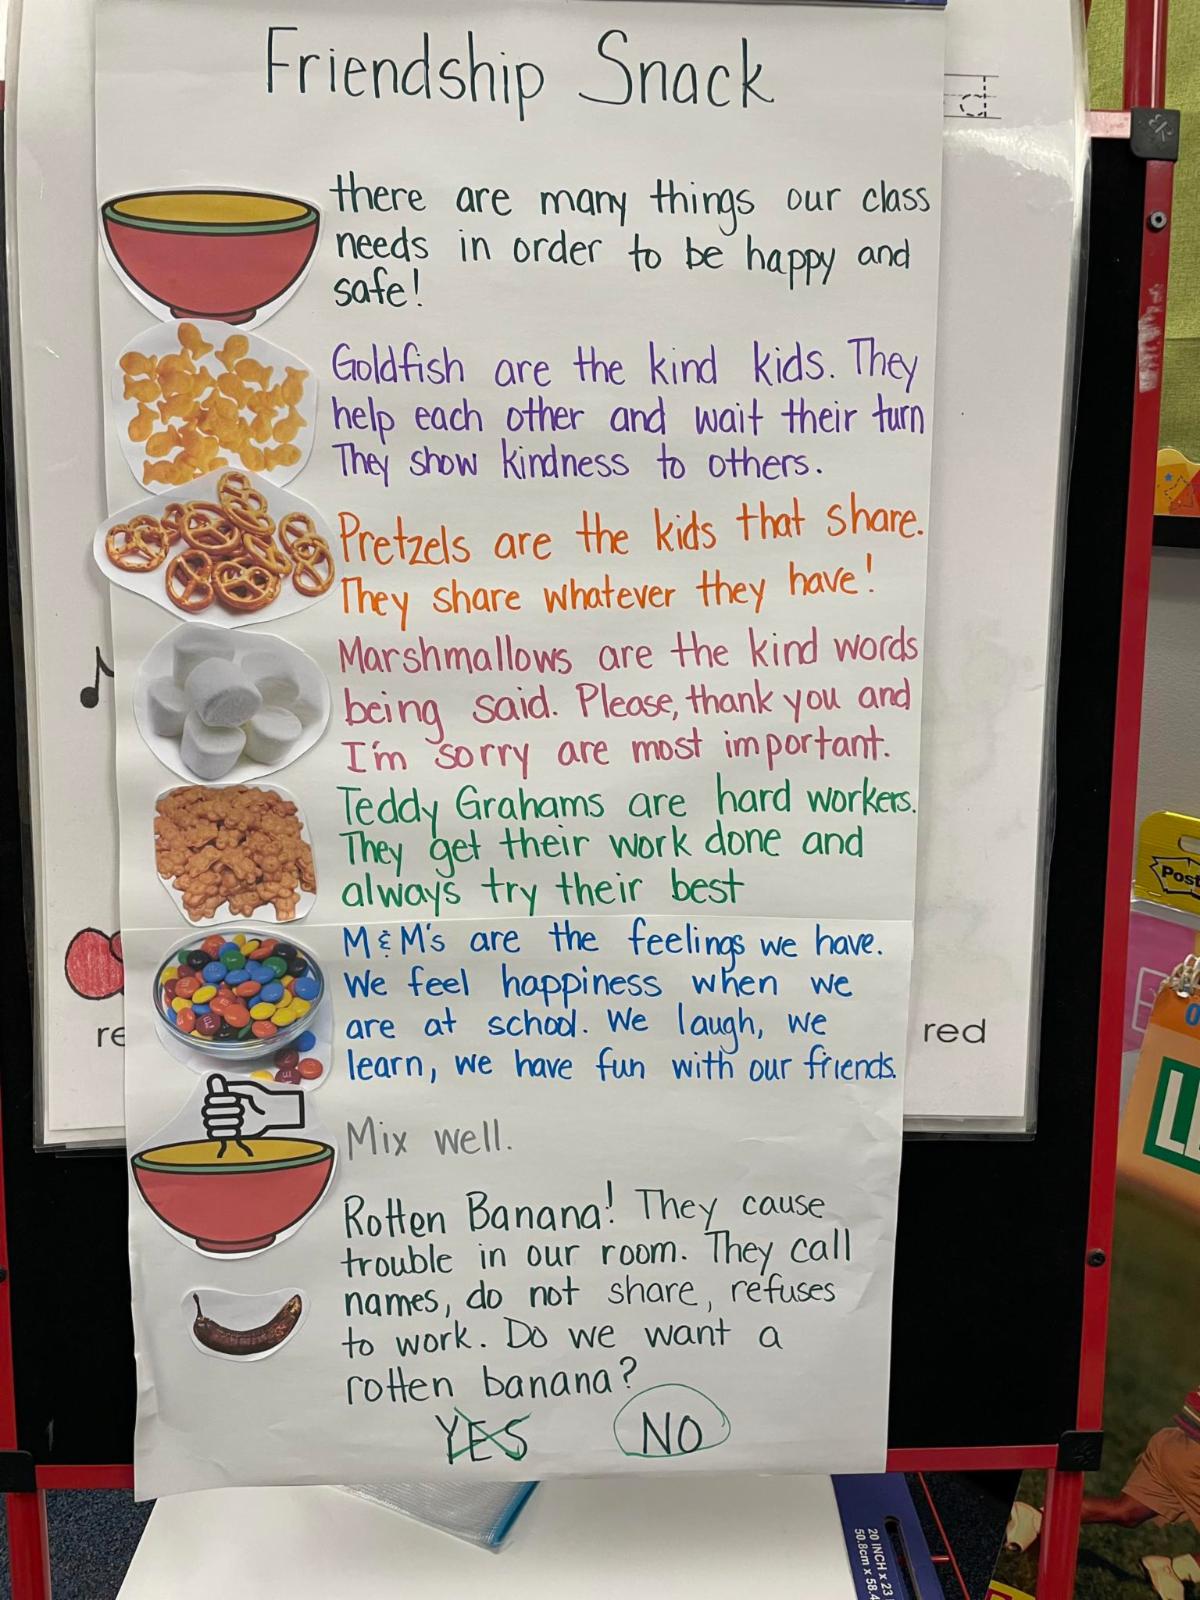 Friendship Snack
there are many things our class
needs in order to be happy and
safe!
Goldfish are the kind kids. They
help each other and wait their turn
They show kindness to others.
Pretzels are the kids that share.
They share whatever they have!
Marshmallows are the kind words
being said. Please, thank you and
I'm sorry are most important.
Teddy Grahams are hard workers.
They get their work done and
always try their best
M & M's are the feelings we have.
We feel happiness when we
are at school. We laugh, we
learn, we have fun with our friends.
Mix well.
Rotten Banana! They cause
trouble in our room. They call
names, do not share, refuses
to work. Do we want a
rotten banana?
YES NO
d
re
red
Post
L
20 INCH x 23
50.8cm x 58.4